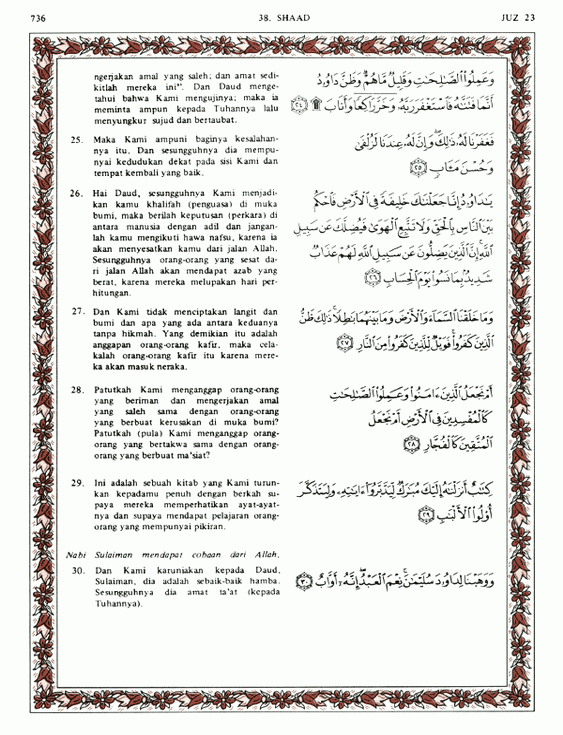 736
38. SHAAD
JUZ 23
ngerjakan amal yang saleh; dan amat sedi-
kitlah mereka ini". Dan Daud menge-
tahui bahwa Kami mengujinya; maka ia
meminta ampun kepada Tuhannya lalu
menyungkur sujud dan bertaubat.
وَعَمِلُوا۟ ٱلصَّٰلِحَٰتِ وَقَلِيلٌ مَّا هُمْ ۗ وَظَنَّ دَاوُۥدُ
أَنَّمَا فَتَنَّٰهُ فَٱسْتَغْفَرَ رَبَّهُۥ وَخَرَّ رَاكِعًا وَأَنَابَ ۩ ﴿٢٤﴾
25. Maka Kami ampuni baginya kesalahan-
nya itu. Dan sesungguhnya dia mempu-
nyai kedudukan dekat pada sisi Kami dan
tempat kembali yang baik.
فَغَفَرْنَا لَهُۥ ذَٰلِكَ ۖ وَإِنَّ لَهُۥ عِندَنَا لَزُلْفَىٰ
وَحُسْنَ مَـَٔابٍ ﴿٢٥﴾
26. Hai Daud, sesungguhnya Kami menjadi-
kan kamu khalifah (penguasa) di muka
bumi, maka berilah keputusan (perkara) di
antara manusia dengan adil dan jangan-
lah kamu mengikuti hawa nafsu, karena ia
akan menyesatkan kamu dari jalan Allah.
Sesungguhnya orang-orang yang sesat da-
ri jalan Allah akan mendapat azab yang
berat, karena mereka melupakan hari per-
hitungan.
يَٰدَاوُۥدُ إِنَّا جَعَلْنَٰكَ خَلِيفَةً فِى ٱلْأَرْضِ فَٱحْكُم
بَيْنَ ٱلنَّاسِ بِٱلْحَقِّ وَلَا تَتَّبِعِ ٱلْهَوَىٰ فَيُضِلَّكَ عَن سَبِيلِ
ٱللَّهِ ۚ إِنَّ ٱلَّذِينَ يَضِلُّونَ عَن سَبِيلِ ٱللَّهِ لَهُمْ عَذَابٌ
شَدِيدٌۢ بِمَا نَسُوا۟ يَوْمَ ٱلْحِسَابِ ﴿٢٦﴾
27. Dan Kami tidak menciptakan langit dan
bumi dan apa yang ada antara keduanya
tanpa hikmah. Yang demikian itu adalah
anggapan orang-orang kafir, maka cela-
kalah orang-orang kafir itu karena mere-
ka akan masuk neraka.
وَمَا خَلَقْنَا ٱلسَّمَآءَ وَٱلْأَرْضَ وَمَا بَيْنَهُمَا بَٰطِلًا ۚ ذَٰلِكَ ظَنُّ
ٱلَّذِينَ كَفَرُوا۟ ۚ فَوَيْلٌ لِّلَّذِينَ كَفَرُوا۟ مِنَ ٱلنَّارِ ﴿٢٧﴾
28. Patutkah Kami menganggap orang-orang
yang beriman dan mengerjakan amal
yang saleh sama dengan orang-orang
yang berbuat kerusakan di muka bumi?
Patutkah (pula) Kami menganggap orang-
orang yang bertakwa sama dengan orang-
orang yang berbuat ma'siat?
أَمْ نَجْعَلُ ٱلَّذِينَ ءَامَنُوا۟ وَعَمِلُوا۟ ٱلصَّٰلِحَٰتِ
كَٱلْمُفْسِدِينَ فِى ٱلْأَرْضِ أَمْ نَجْعَلُ
ٱلْمُتَّقِينَ كَٱلْفُجَّارِ ﴿٢٨﴾
29. Ini adalah sebuah kitab yang Kami turun-
kan kepadamu penuh dengan berkah su-
paya mereka memperhatikan ayat-ayat-
nya dan supaya mendapat pelajaran orang-
orang yang mempunyai pikiran.
كِتَٰبٌ أَنزَلْنَٰهُ إِلَيْكَ مُبَٰرَكٌ لِّيَدَّبَّرُوٓا۟ ءَايَٰتِهِۦ وَلِيَتَذَكَّرَ
أُو۟لُوا۟ ٱلْأَلْبَٰبِ ﴿٢٩﴾
Nabi Sulaiman mendapat cobaan dari Allah.
30. Dan Kami karuniakan kepada Daud,
Sulaiman, dia adalah sebaik-baik hamba.
Sesungguhnya dia amat ta'at (kepada
Tuhannya).
وَوَهَبْنَا لِدَاوُۥدَ سُلَيْمَٰنَ ۚ نِعْمَ ٱلْعَبْدُ ۖ إِنَّهُۥٓ أَوَّابٌ ﴿٣٠﴾